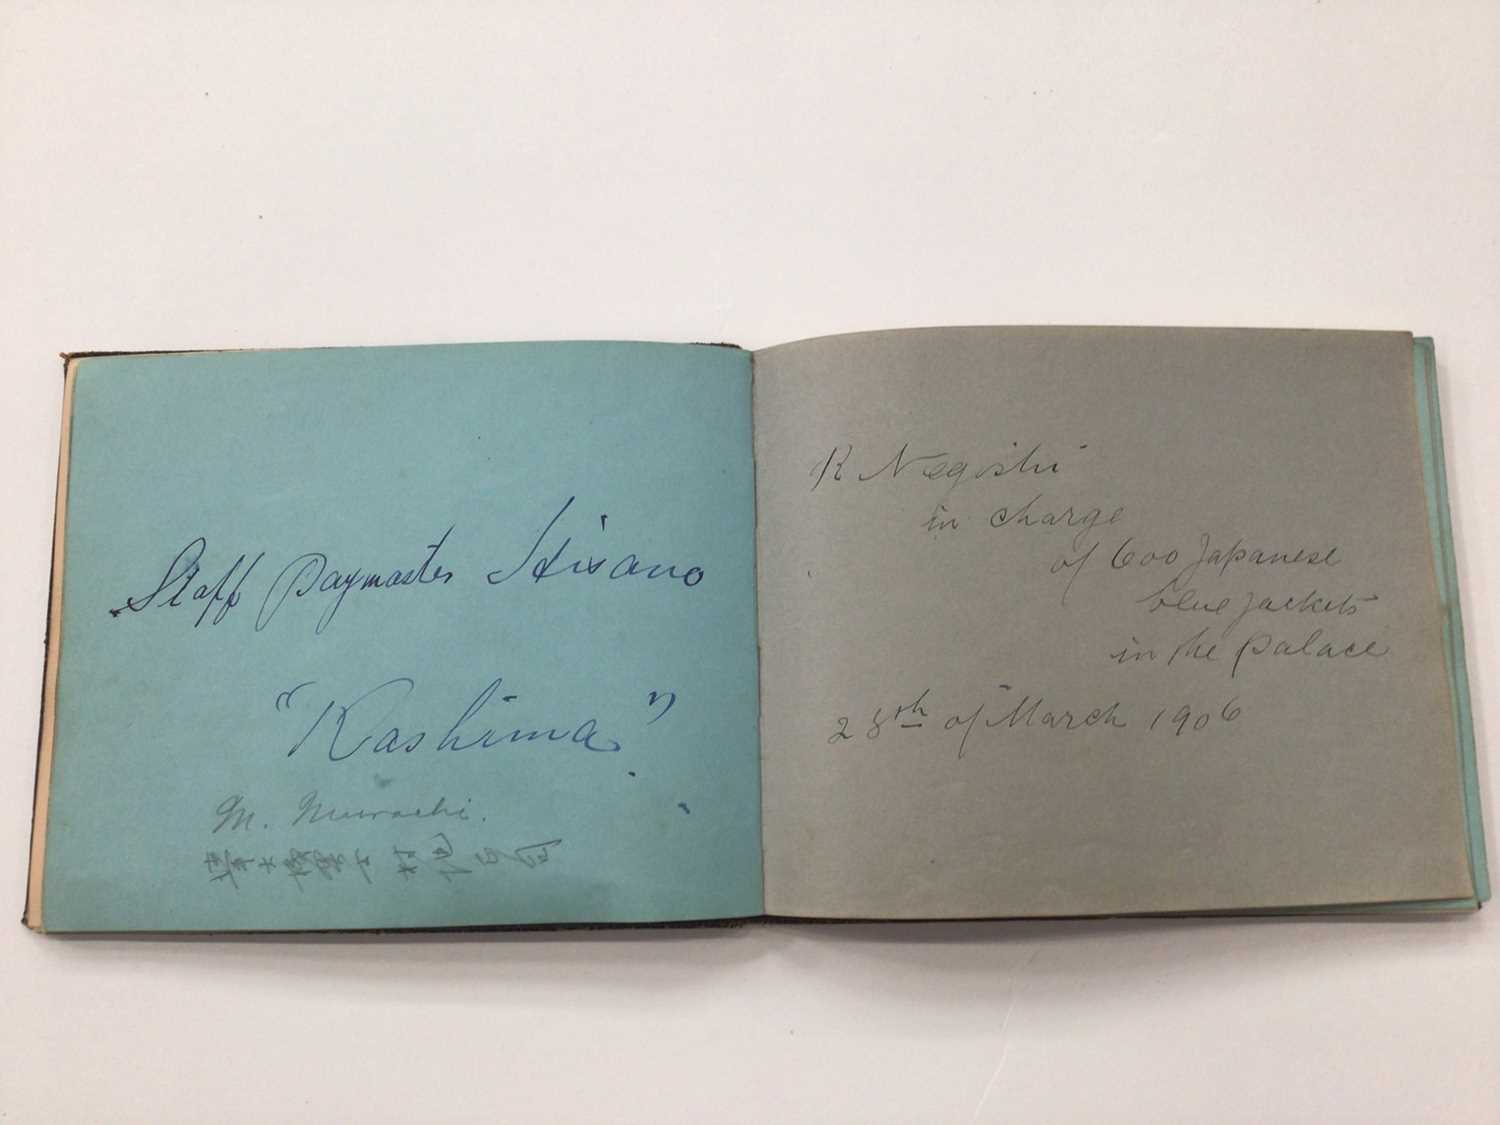 Staff Paymaster Hisano
"Kashima".
M. Murachi.
R Negishi
in charge
of 600 Japanese
blue jackets
in the palace
28th of March 1906